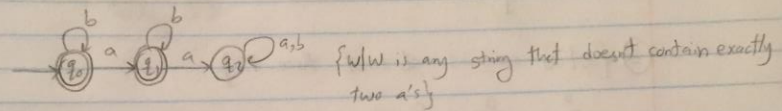 b b
a a a,b
q0 q1 q2 {w/w is any string that doesn't contain exactly
two a's}